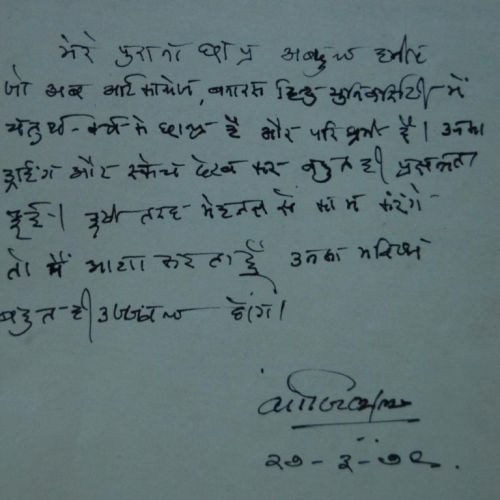 मेरे पुराना छात्र अब्दुल हमीद
जो अब आर्ट कालेज, बनारस हिन्दु युनिवर्सिटी में
चतुर्थ-वर्ष के छात्र है और परिश्रमी है। उनका
ड्राईंग और स्केच देख कर बहुत ही प्रसन्नता
हुई-। इसी तरह मेहनत से काम करेंगे-
तो मैं आशा करता हूँ उनका भविष्य
बहुत ही उज्जवल होगा।
२७-३-७९.